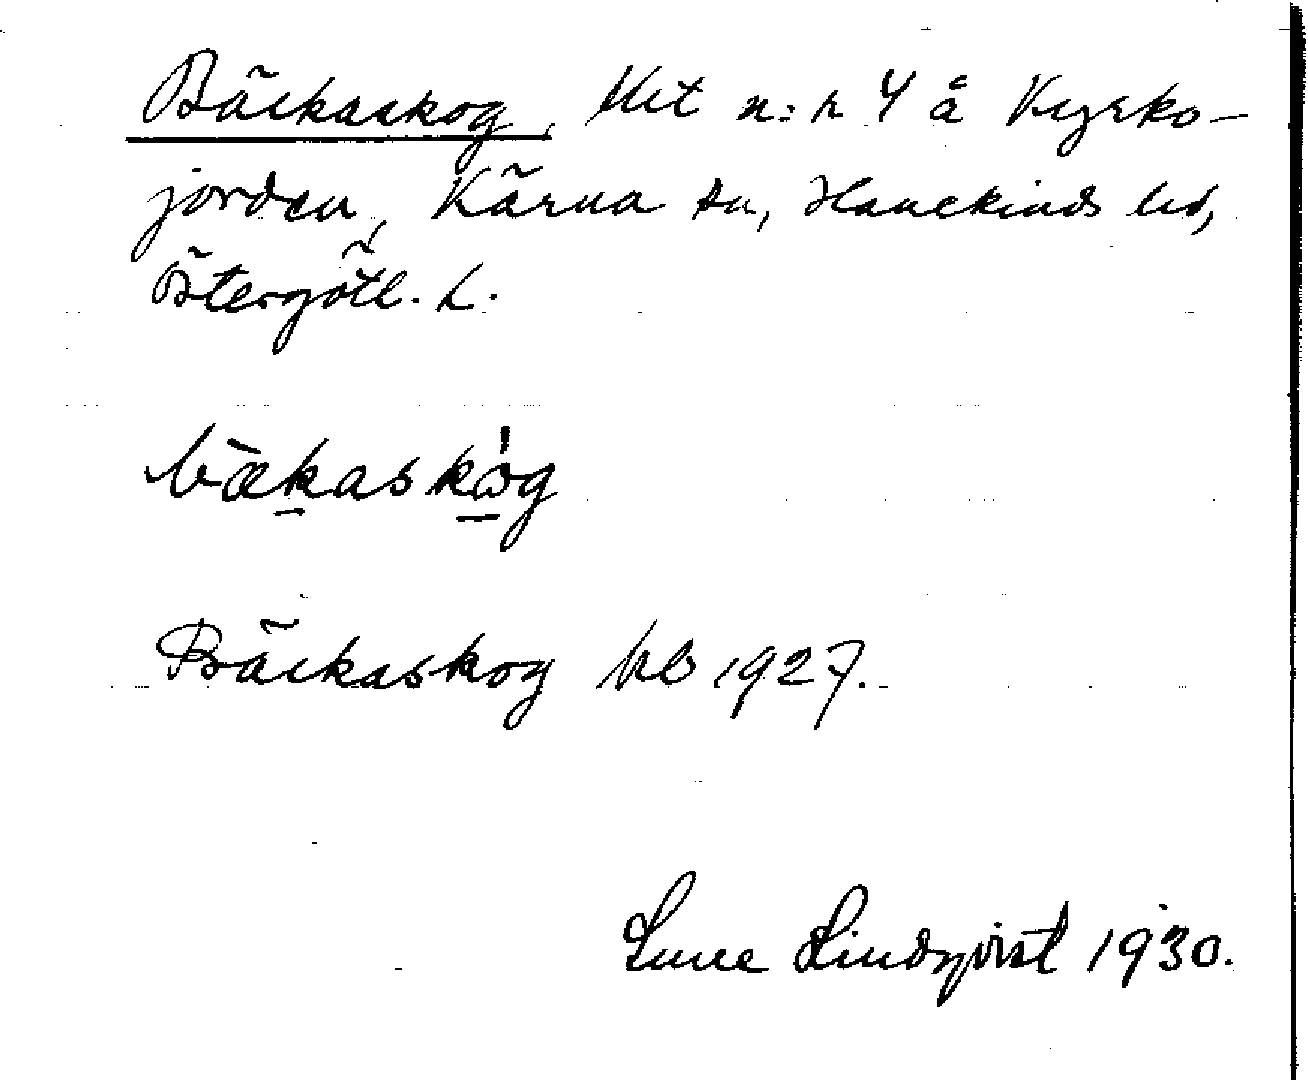 Bäckaskog, Ut n:r 4 å Kyrko-
jorden, Kärna sn, Hanekinds hd,
Östergötl. L.
bækaskog
Bäckaskog kb 1927.
Sune Lindqvist 1930.